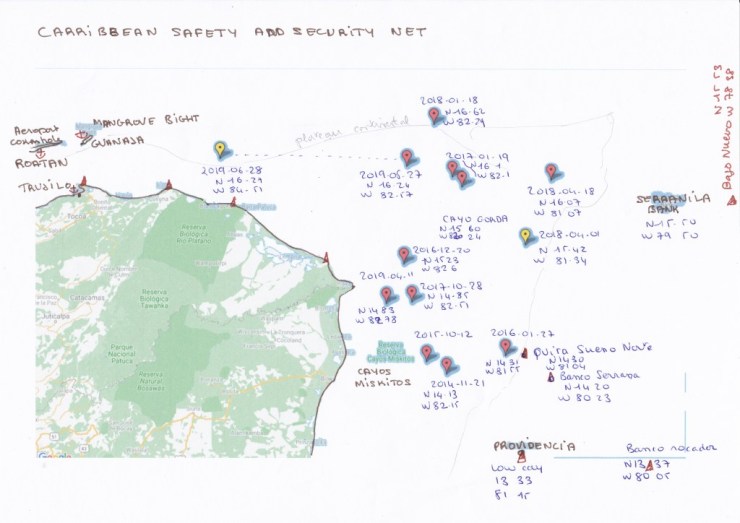 CARRIBBEAN SAFETY AND SECURITY NET
N 15 53
W 78 38
Bajo Nuevo
2018-01-18
N-16-62
W 82-74
plateau continental
MANGROVE BIGHT
GUANAJA
Aeroport
ROATAN
TRUJILO
2019-06-28
N-16-29
W 84-51
2019-05-27
N 16-24
W 82-57
2017-01-19
N-16-1
W-82-1
2018-04-18
N 16-07
W 81 07
SERRANILA
BANK
N-15-50
W 79 50
CAYO GORDA
N 15 60
24
2018-04-01
N-15-42
W 81-34
2016-12-20
N 1523
W 82 6
2019-04-11
N 14 83
W 8278
2017-10-28
N 14-85
W 82-51
Reserva
Biológica
Rio Platano
Reserva
Biológica
Tawahka
Catacamas
Juticalpa
Parque
Nacional
Patuca
Reserva
Natural
Bosawas
Reserva
Biológica
Cayos Miskitos
CAYOS
MISKITOS
2015-10-12
2014-11-21
N 14-13
W 82-15
2016-01-27
N 14 31
W 81 55
Quita Sueno Norte
N 1430
W 8104
Banco Serrana
N 14 20
W 80 23
PROVIDENCIA
Low cay
13 33
81 15
Banco rocador
N13 37
W 80 05
Google